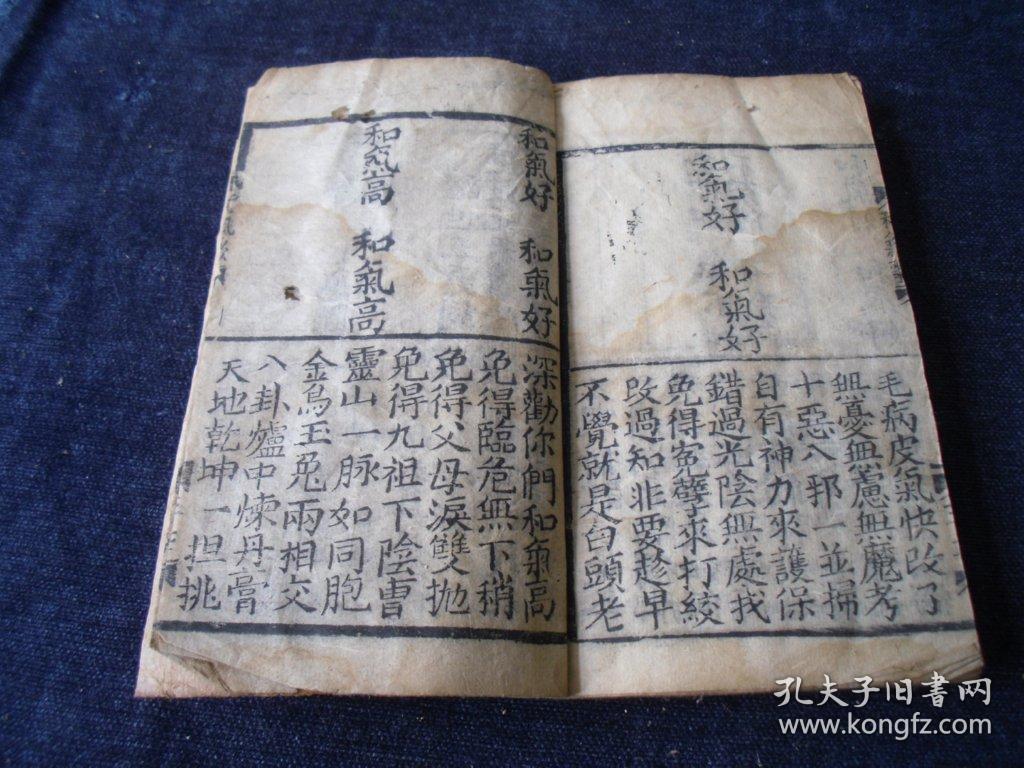 和氣好
和氣好
毛病皮氣快改了
無憂無慮無魔考
十惡八邪一並掃
自有神力來護保
錯過光陰無處找
免得冤孽來打絞
改過知非要趁早
不覺就是白頭老
和氣好
和氣好
和氣高
和氣高
深勸你們和氣高
免得臨危無下稍
免得父母淚雙拋
免得九祖下陰曹
靈山一脉如同胞
金烏玉兔兩相交
八卦爐中煉丹膏
天地乾坤一担挑
孔夫子旧書网
www.kongfz.com